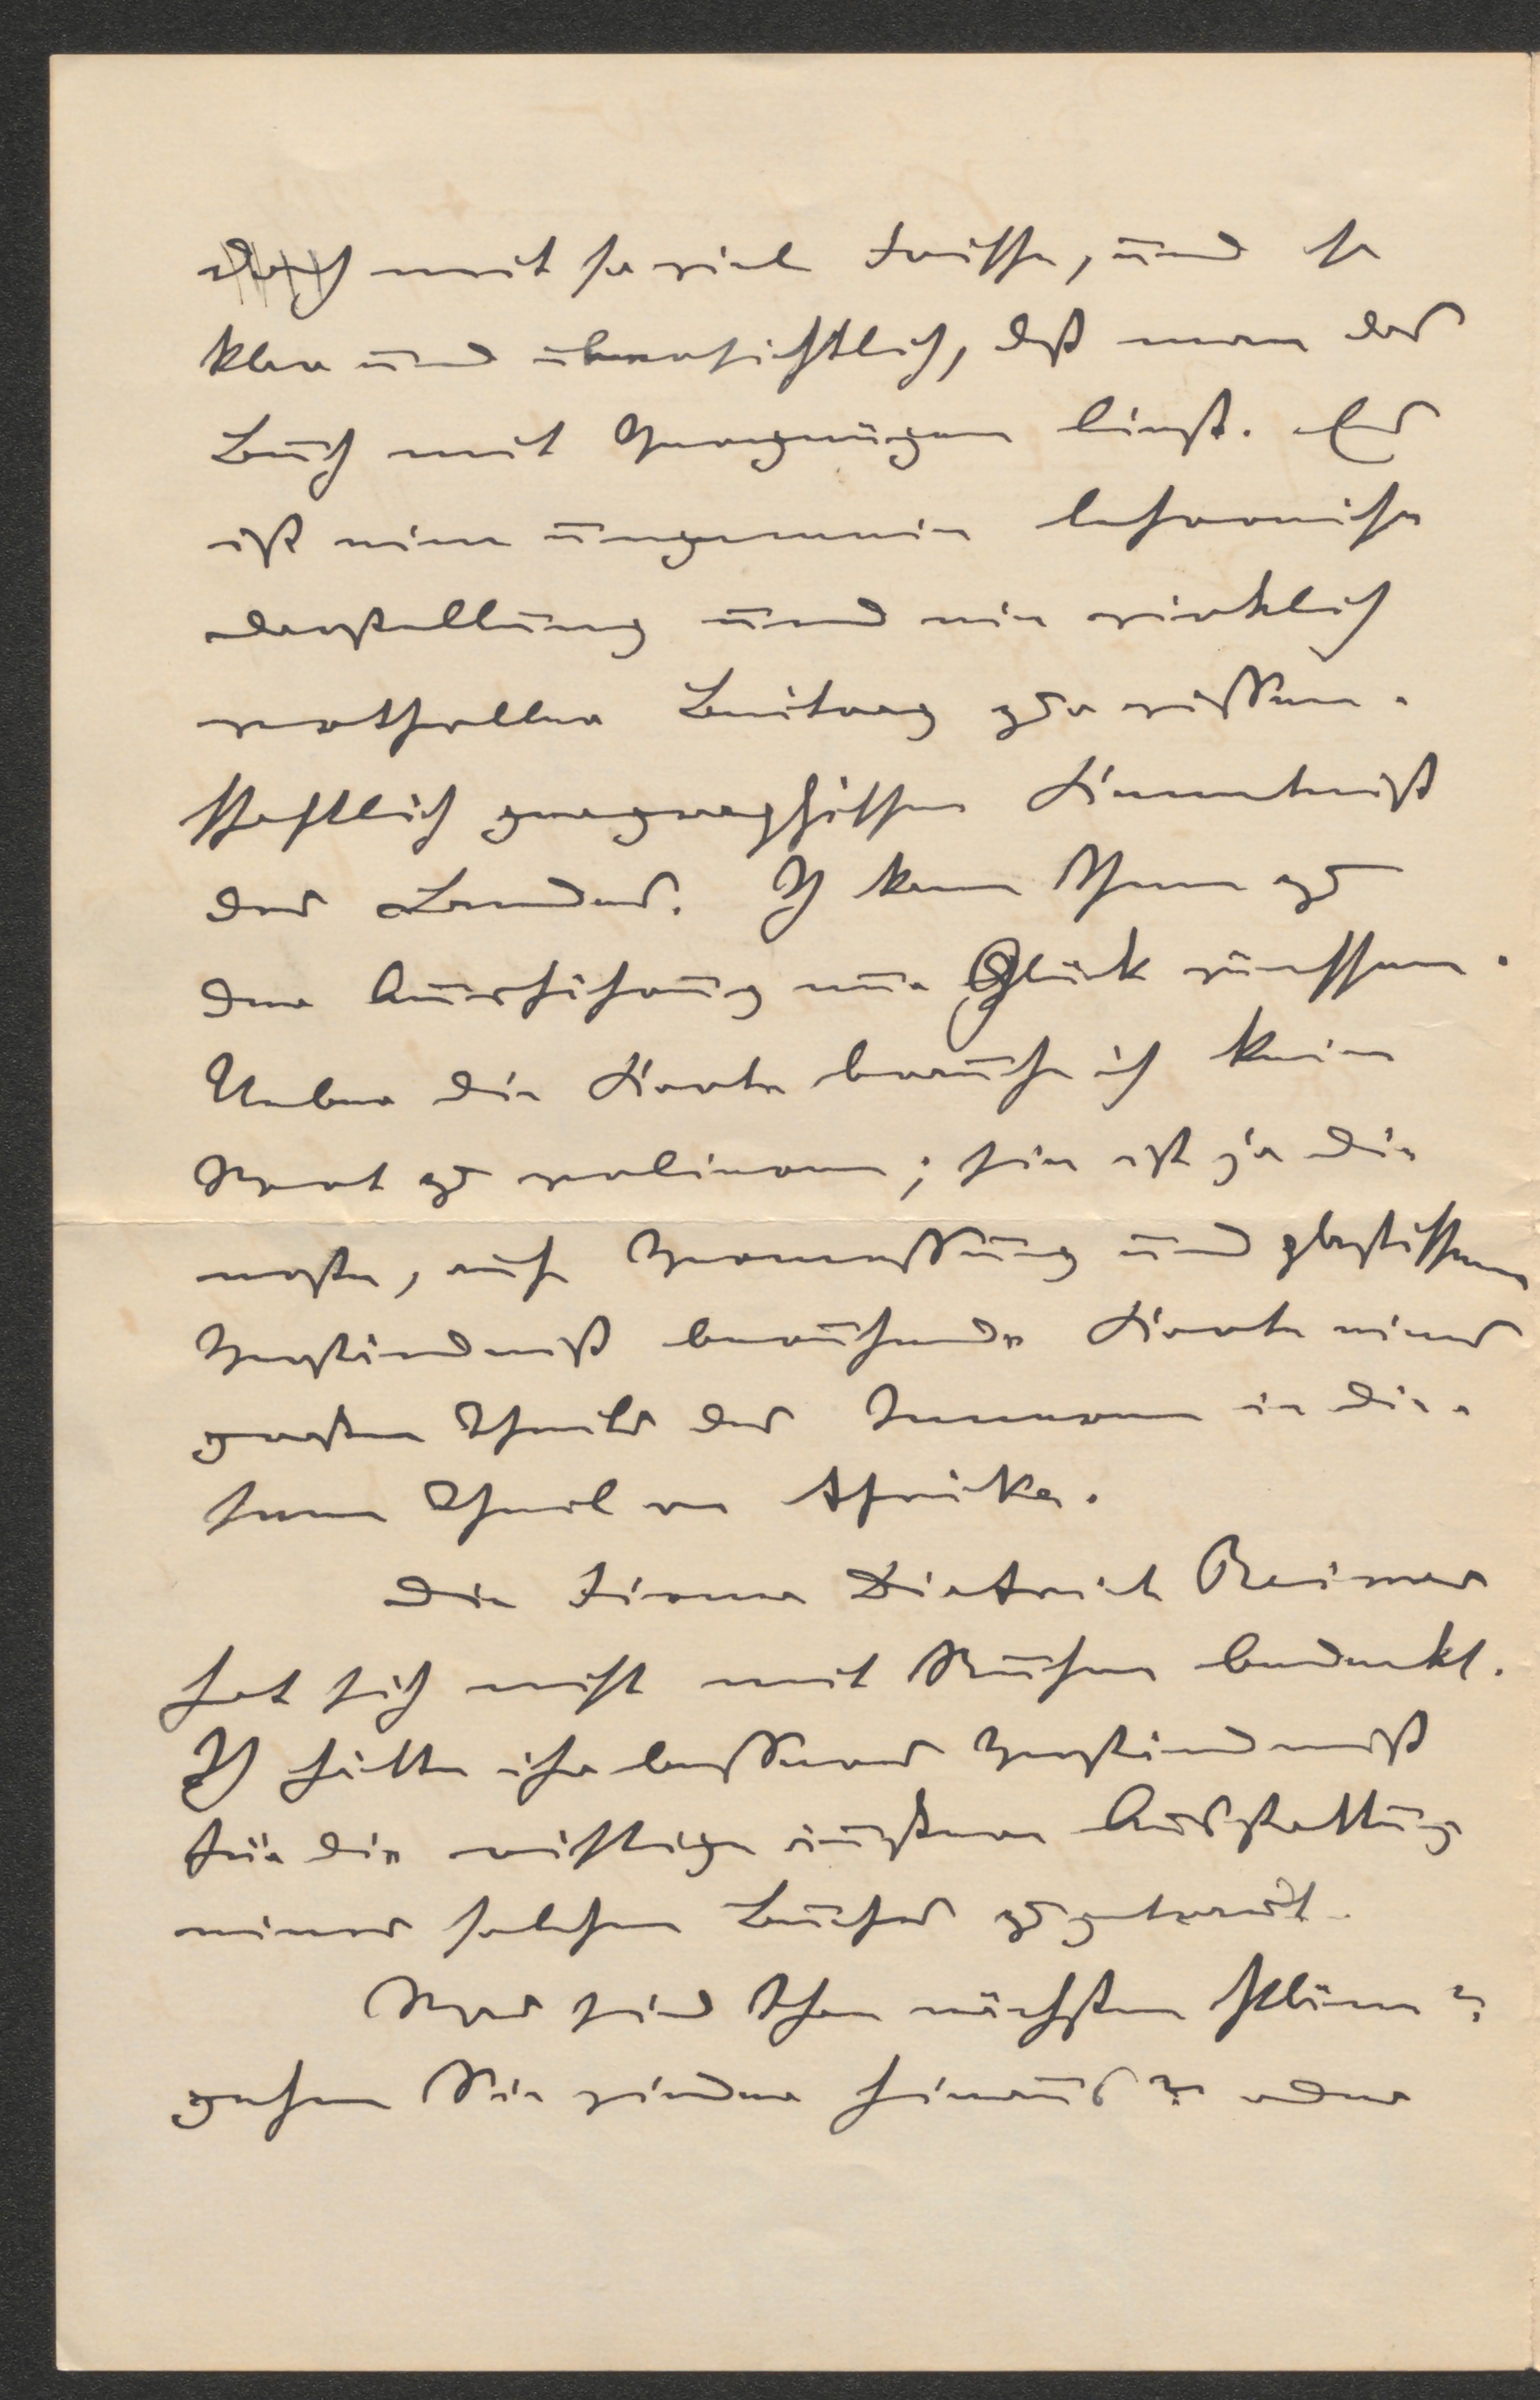 doch mit so viel Frische, und so
klar und übersichtlich, daß man das
Buch mit Vergnügen liest. Es
ist eine ungemein lehrreiche
Darstellung und ein wirklich
werthvoller Beitrag zur wissen-
schaftlich geographischen Kenntniß
des Landes. Ich kann Ihnen zu
der Ausführung nur Glück wünschen.
Ueber die Karte brauche ich kein
Wort zu verlieren; sie ist ja die
erste, auf Vermessung und plastischem
Verständniß beruhende Karte eines
großen Theils des Inneren in die-
sem Theil von Afrika.
Die Firma Dietrich Reimer
hat sich nicht mit Ruhm bedeckt.
Ich hätte ihr besseres Verständniß
für die wichtige äußere Ausstattung
eines solchen Buches zugetraut.
Was sind Ihre nächsten Pläne?
gehen Sie wieder hinaus? oder